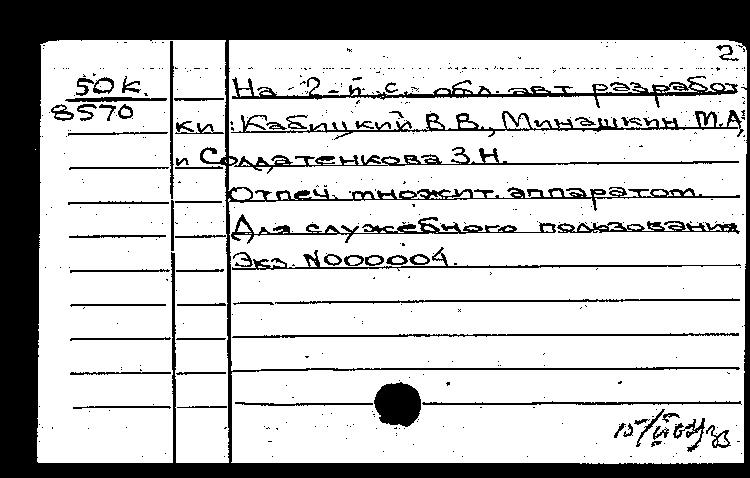 2
50к. На 2-й с. обл. авт. разработ-
8570
ки: Кабицкий В.В., Минашкин М.А.
и Солдатенкова З.Н.
Отпеч. множит. аппаратом.
Для служебного пользования
Экз. N000004.